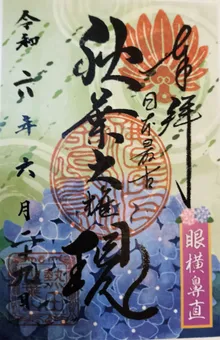 奉拝
日本最古
秋葉大権現
眼横鼻直
令和六年六月二十九日